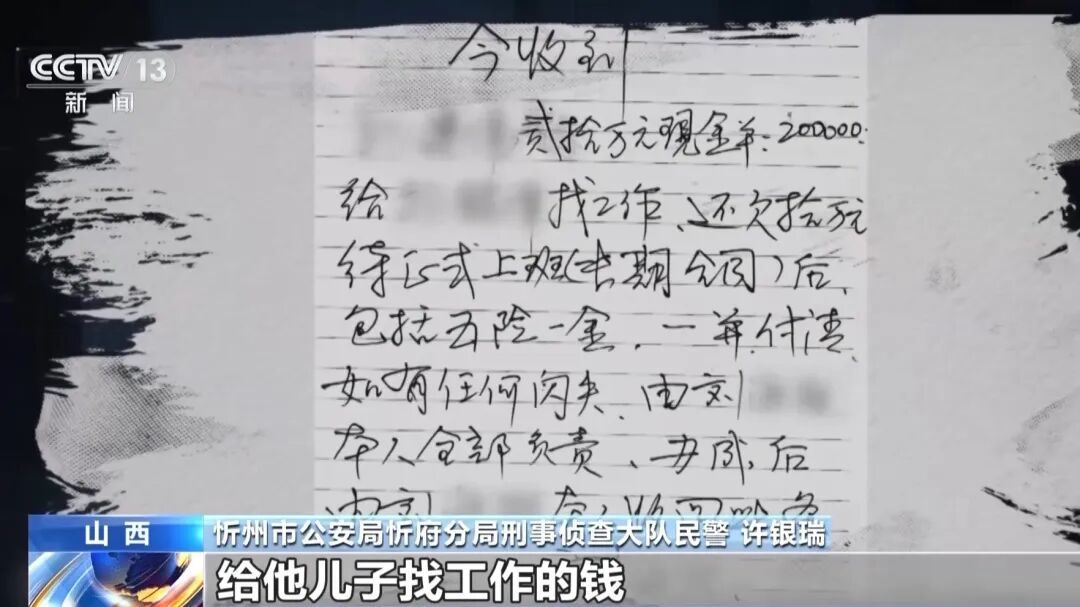 CCTV 13
新闻
今收到
贰拾万元现金单:200000.
给 找工作、还欠拾万元
待正式上班(长期合同)后、
包括五险一金、一并付清、
如有任何闪失、由刘
本人全部负责、办成后
由刘 本人收回
山西
忻州市公安局忻府分局刑事侦查大队民警 许银瑞
给他儿子找工作的钱